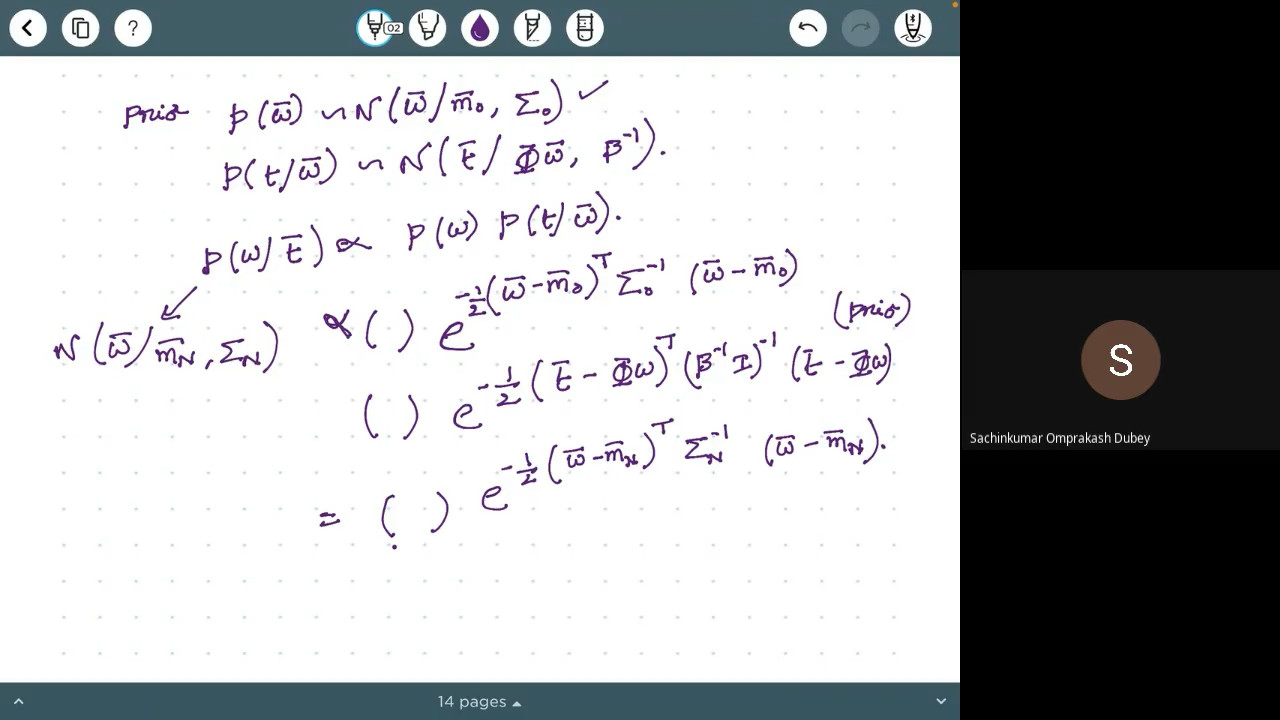 ?
02
prior p(ω̅) ~ N(ω̅/m̅₀, Σ₀) ✓
p(t/ω̅) ~ N(t̅/Φ̅ω̅, β⁻¹).
p(ω/t̅) ∝ p(ω) p(t/ω̅).
N(ω̅/m̅_N, Σ_N) ∝ ( ) e^{-1/2 (ω̅-m̅₀)^T Σ₀⁻¹ (ω̅-m̅₀)}
(prior)
( ) e^{-1/2 (t̅ - Φ̅ω)^T (β⁻¹I)⁻¹ (t̅ - Φ̅ω)}
= ( ) e^{-1/2 (ω̅-m̅_N)^T Σ_N⁻¹ (ω̅-m̅_N)}.
S
Sachinkumar Omprakash Dubey
14 pages